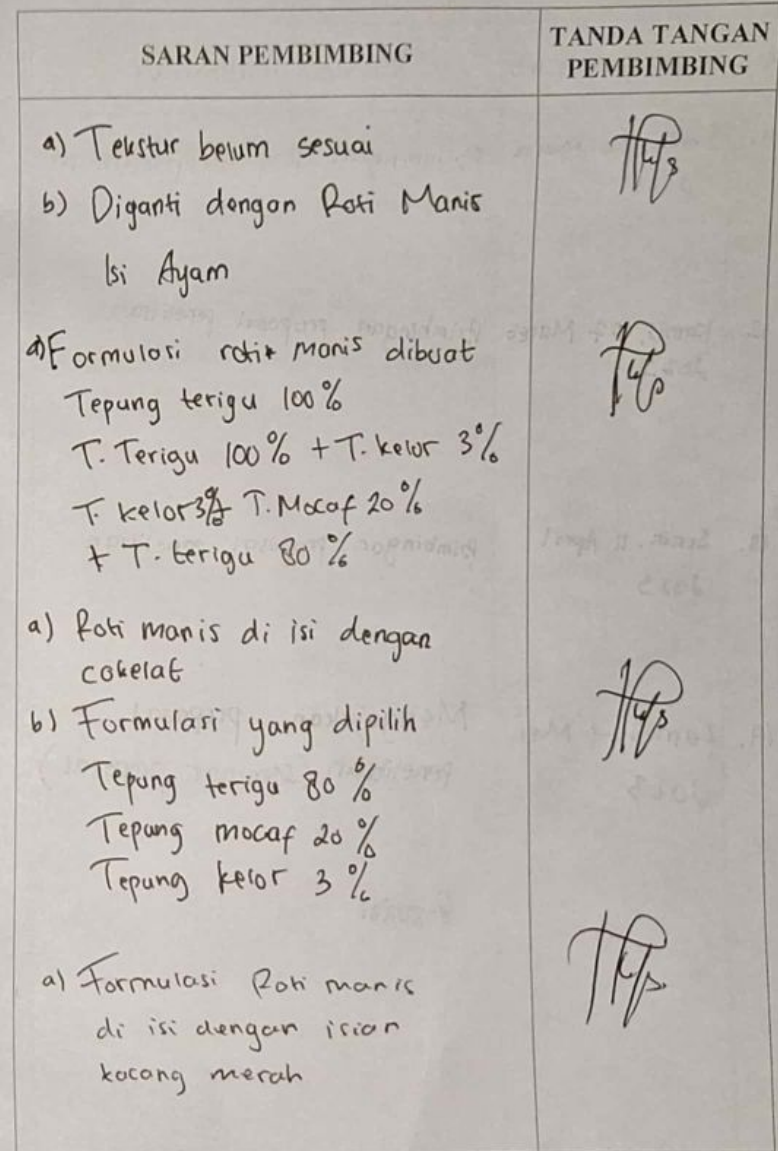 SARAN PEMBIMBING
TANDA TANGAN
PEMBIMBING
a) Tekstur belum sesuai
b) Diganti dengan Roti Manis
Isi Ayam
a) Formulasi roti manis dibuat
Tepung terigu 100%
T. Terigu 100% + T. kelor 3%
T. kelor 3% + T. Mocaf 20%
+ T. terigu 80%
a) Roti manis di isi dengan
cokelat
b) Formulasi yang dipilih
Tepung terigu 80%
Tepung mocaf 20%
Tepung kelor 3%
a) Formulasi Roti manis
di isi dengan isian
kacang merah